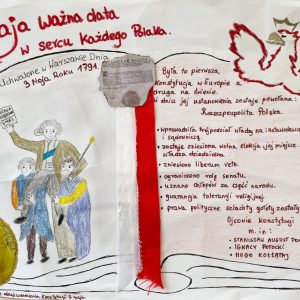 aja ważna data
w sercu każdego Polaka.
Uchwalone w Warszawie Dnia
3 Maja Roku 1791
Była to pierwsza
Konstytucja w Europie
druga na świecie.
W dniu jej ustanowienia zostaje powołana
Rzeczpospolita Polska.
• wprowadziła trójpodział władzy na ustawodawczą
i sądowniczą.
• zostaje zniesiona wolna elekcja, jej miejsce
władza dziedziczna.
• zniesiono liberum veto.
• ograniczono rolę senatu.
• uznano chłopów za część narodu.
• gwarancja tolerancji religijnej.
• prawa polityczne szlachty gołoty zostały
Ojcowie Konstytucji
m. in:
- STANISŁAW AUGUST
- IGNACY POTOCKI
- HUGO KOŁŁĄTAJ
Konstytucji 3 maja